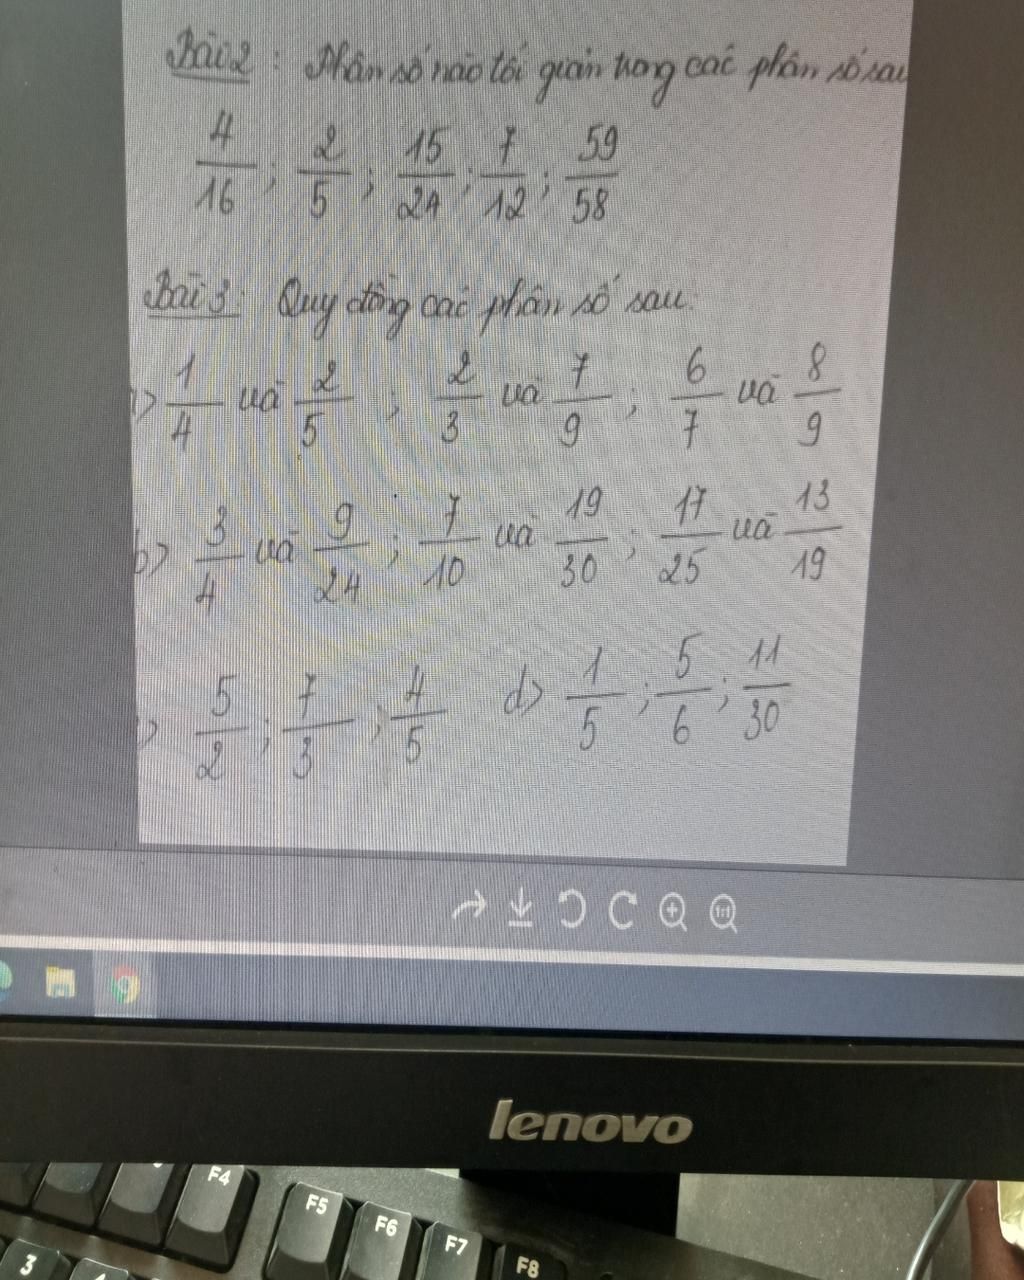 Bài 2 : Phân số nào tối giản trong các phân số sau
4/16 ; 2/5 ; 15/24 ; 7/12 ; 59/58
Bài 3 : Quy đồng các phân số sau:
a) 1/4 và 2/5 ; 2/3 và 7/9 ; 6/7 và 8/9
b) 3/4 và 9/24 ; 7/10 và 19/30 ; 17/25 và 13/19
) 5/2 ; 7/3 ; 4/5 d) 1/5 ; 5/6 ; 11/30
1:1
lenovo
F4 F5 F6 F7 F8
3